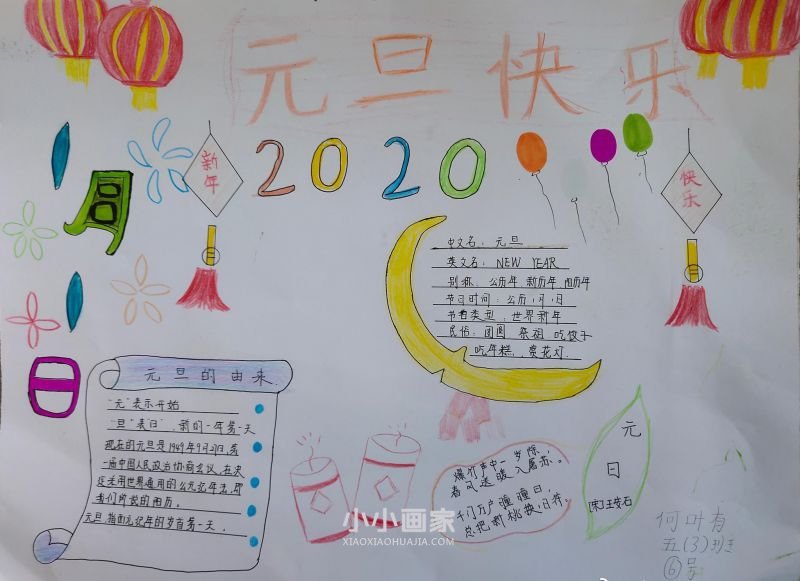 元旦快乐
新年
2020
快乐
1月
1日
中文名：元旦
英文名：NEW YEAR
别称：公历年 新历年 阳历年
节日时间：公历1月1日
节日类型：世界新年
民俗：团圆 祭祖 吃饺子
吃年糕，赏花灯.
元旦的由来.
"元"表示开始
"旦"表日"，新的一年第一天
现在的元旦是1949年9月27日，第
一届中国人民政治协商会议，在决
议采用世界通用的公元纪年法，即
我们所说的阳历。
元旦，指的元纪年的岁首第一天.
爆竹声中一岁除
春风送暖入屠苏。
千门万户曈曈日，
总把新桃换旧符。
元
日
[宋]王安石
小小画家
XIAOXIAOHUAJIA.COM
何叶有
五(3)班
⑥号